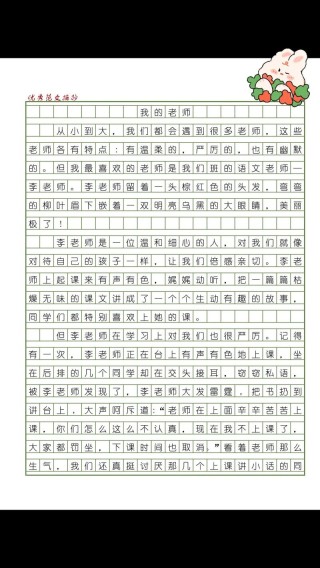 优秀范文摘抄
我的老师
从小到大，我们都会遇到很多老师，这些
老师各有特点：有温柔的，严厉的，也有幽默
的。但我最喜欢的老师是我们班的语文老师—
李老师。李老师留着一头棕红色的头发，弯弯
的柳叶眉下嵌着一双明亮乌黑的大眼睛。美丽
极了！
李老师是一位温和细心的人，对我们就像
对待自己的孩子一样，让我们倍感亲切。李老
师上起课来有声有色，娓娓动听，把一篇篇枯
燥无味的课文讲成了一个个生动有趣的故事，
同学们都特别喜欢上她的课。
但李老师在学习上对我们也很严厉。记得
有一次，李老师正在台上有声有色地上课，坐
在后排的几个同学却在交头接耳，窃窃私语，
被李老师发现了，李老师大发雷霆，把书扔到
讲台上，大声呵斥道：“老师在上面辛辛苦苦上
课，你们怎么这么不认真，现在我不上课了，
大家都罚坐，下课时间也取消。”看着老师那么
生气，我们还真挺讨厌那几个上课讲小话的同